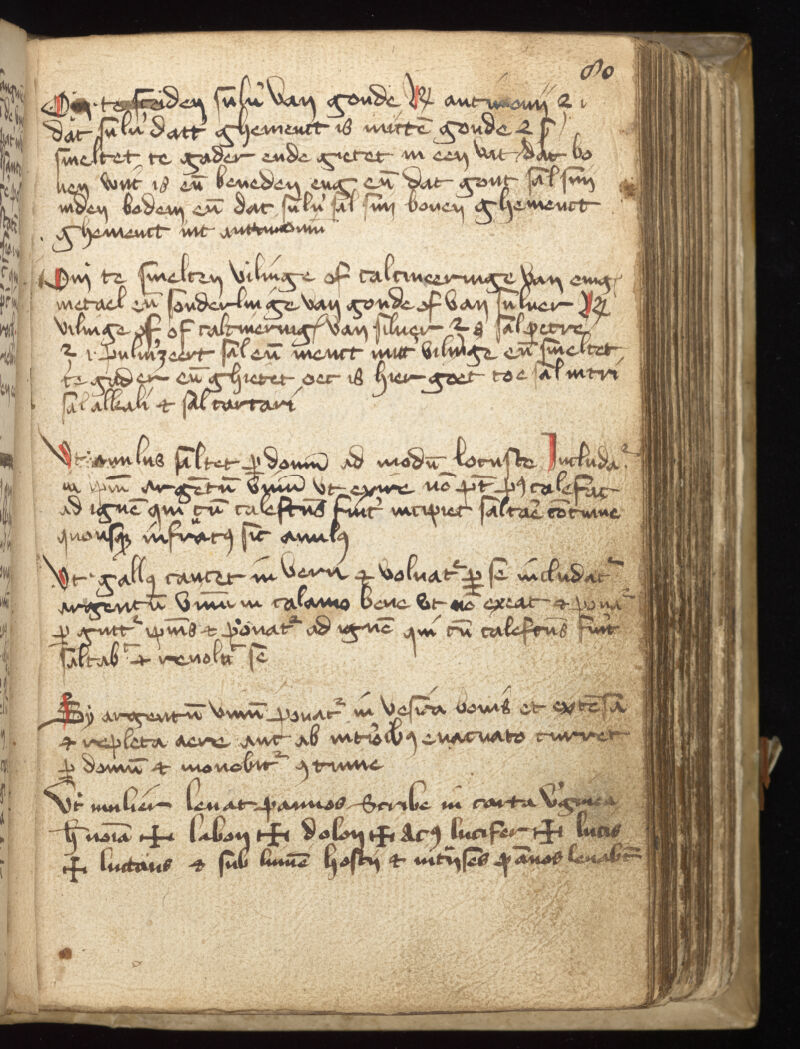 80
Om te sceiden sulu' van goude ℞ antimonii 2 i
dat sulu' datt ghemenct is mitte goude 2 ʃ
smeltet te gader ende gietet in een vat dat bo
uen wijt is eñ beneden eng eñ dat gout sal sijn
inden bodem eñ dat sulu' sal sijn bouen ghemenct
ghemenct mit antimonii
Om te smelten vilinge of calcineeringe van enig
metael eñ sonderlinge van goude of van siluer ℞
vilinge of of calcinering van siluer 2 8 salpetre
2 i pulu'izeert sal eñ menct mit vilinge eñ smeltet
te gader eñ ghietet oec is hier goet toe sal nitri
sal alkali et sal tartari
Vt anulus saltet ꝑ domū ad modū locuste Includa
in ip̄m argētū viuū vt exire nō pt ꝑ calefac
ad ignē qui cū calefcūs fuit' incipiet saltaē cōtinue
quousqꝫ infrātꝰ sit anulꝰ
Vt gallꝰ cantet in veru et voluat ꝑ se includat
argentū viuū in calamo bene vt nō exeat et ponat
ꝑ gutt ip̄ius et ponat ad ignē qui cū calefcūs fuit
saltab et reuolu se
Sy argentū viuū ponat in vesica bouis et extēsa
et repleta aere aut ab int'iorib' euacuato curret
ꝑ domū et mouebit 9tinue
Vt mulier leuat pannos Scribe in carta v'ginea
h̄ noīa ✠ labon ✠ dolon ✠ acꝰ lucifer ✠ lucis
✠ lucanis et sub limē hostij et int̄ns̄es pānos leuabt